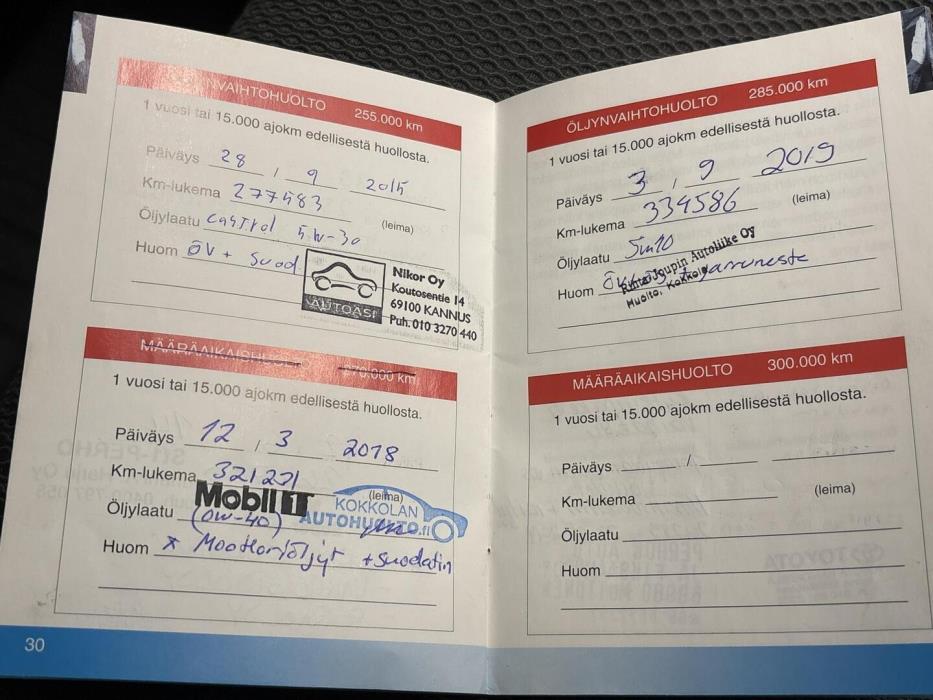 ÖLJYNVAIHTOHUOLTO 255.000 km
1 vuosi tai 15.000 ajokm edellisestä huollosta.
Päiväys 28 / 9 2015
Km-lukema 277483
(leima)
Öljylaatu Castrol 5W-30
Huom ÖV + Suod.
AUTOASI
Nikor Oy
Koutosentie 14
69100 KANNUS
Puh. 010 3270 440
MÄÄRÄAIKAISHUOLTO 270.000 km
1 vuosi tai 15.000 ajokm edellisestä huollosta.
Päiväys 12 / 3 2018
Km-lukema 321271
(leima)
Mobil 1
Öljylaatu (0W-40)
KOKKOLAN
AUTOHUOLTO.fi
Huom * Moottoriöljyt + suodatin
30
ÖLJYNVAIHTOHUOLTO 285.000 km
1 vuosi tai 15.000 ajokm edellisestä huollosta.
Päiväys 3 / 9 2019
Km-lukema 334586
(leima)
Öljylaatu 5W10
Joupin Autoliike Oy
Huolto, Kokkola
Huom jarruneste
MÄÄRÄAIKAISHUOLTO 300.000 km
1 vuosi tai 15.000 ajokm edellisestä huollosta.
Päiväys /
Km-lukema
(leima)
Öljylaatu
Huom